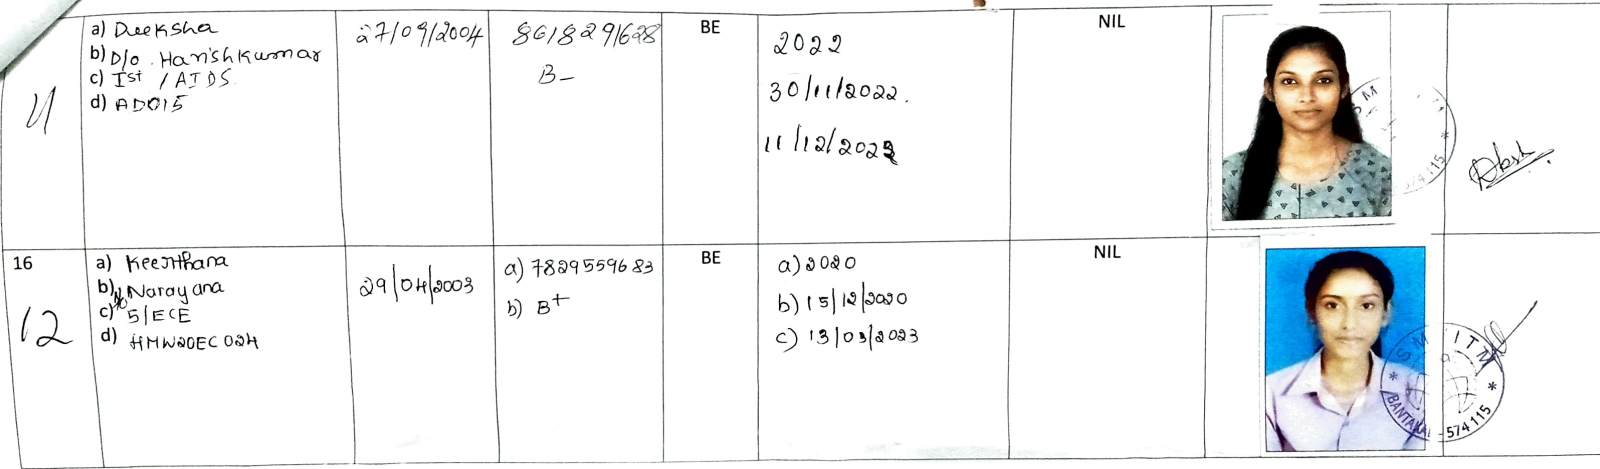 11
a) Deeksha
b) D/o . Harishkumar
c) Ist / AIDS
d) AD015
27/09/2004
8618291628
B-
BE
2022
30/11/2022.
11/12/2023
NIL
SM
* 574115
16
12
a) Keerthana
b) Narayana
c) 5/ECE
d) 4MW20EC024
29/04/2003
a) 7829559683
b) B+
BE
a) 2020
b) 15/12/2020
c) 13/03/2023
NIL
* SM ITM *
BANTAKAL - 574115